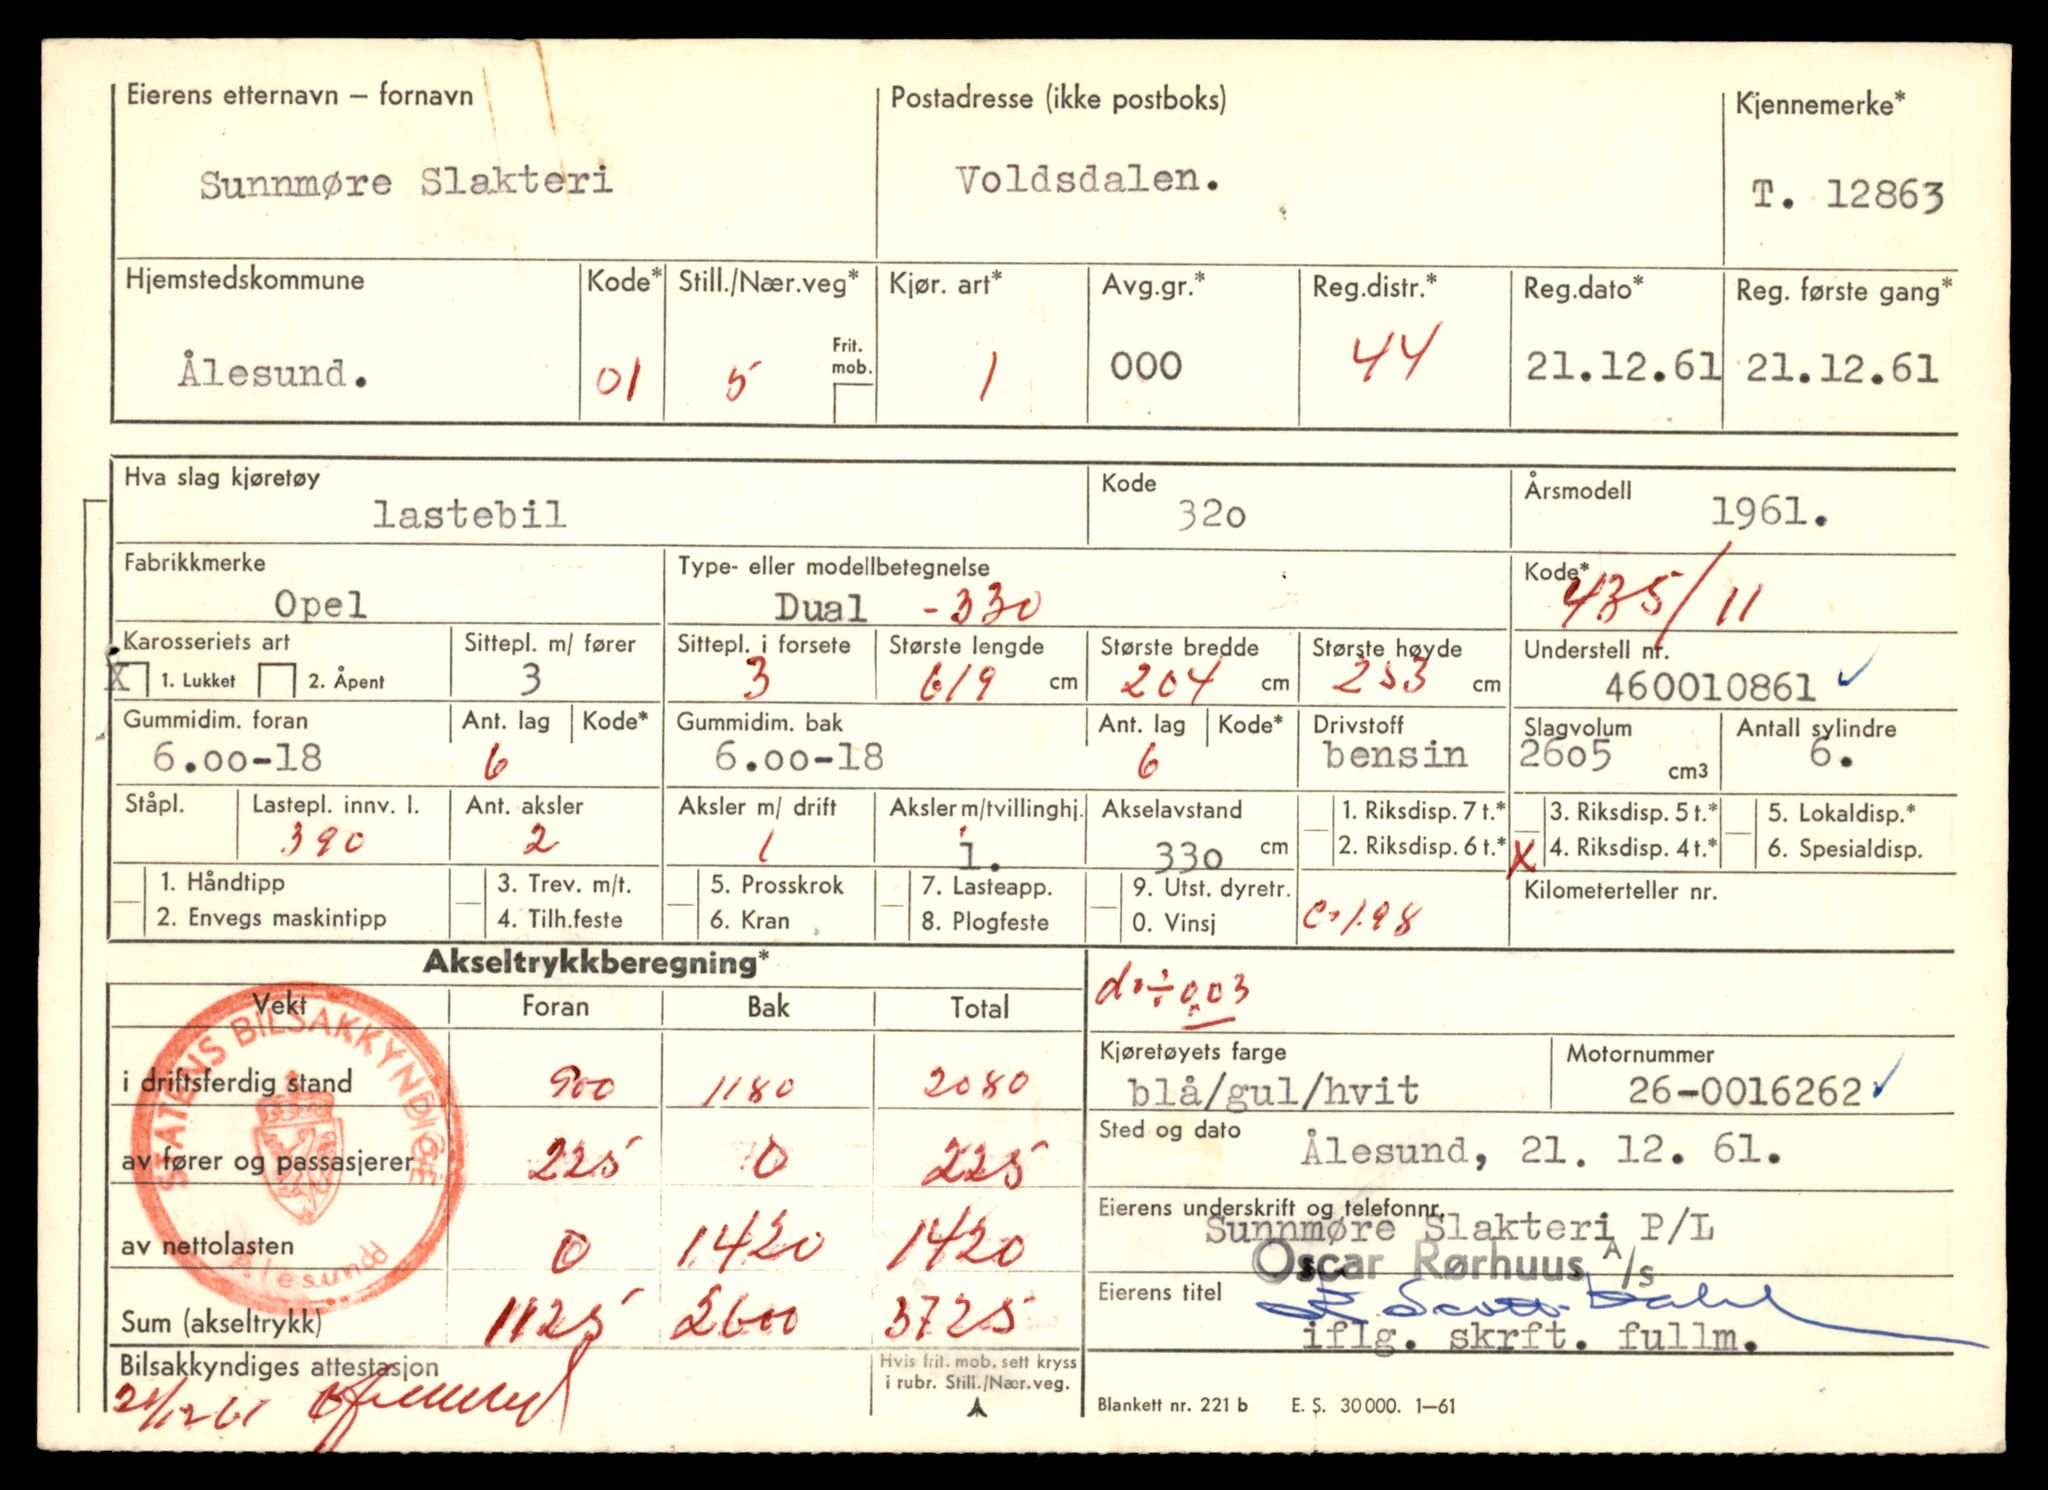 Eierens etternavn – fornavn Postadresse (ikke postboks) Kjennemerke*
Sunnmøre Slakteri Voldsdalen. T. 12863
Hjemstedskommune Kode* Still./Nær.veg* Kjør. art* Avg.gr.* Reg.distr.* Reg.dato* Reg. første gang*
Ålesund. 01 5 Frit. mob. 1 000 44 21.12.61 21.12.61
Hva slag kjøretøy Kode Årsmodell
lastebil 320 1961.
Fabrikkmerke Type- eller modellbetegnelse Kode*
Opel Dual -330 435/11
Karosseriets art Sittepl. m/ fører Sittepl. i forsete Største lengde Største bredde Største høyde Understell nr.
X 1. Lukket 2. Åpent 3 3 619 cm 204 cm 253 cm 460010861
Gummidim. foran Ant. lag Kode* Gummidim. bak Ant. lag Kode* Drivstoff Slagvolum Antall sylindre
6.00-18 6 6.00-18 6 bensin 2605 cm3 6.
Ståpl. Lastepl. innv. l. Ant. aksler Aksler m/ drift Aksler m/tvillinghj. Akselavstand 1. Riksdisp. 7 t.* 3. Riksdisp. 5 t.* 5. Lokaldisp.*
390 2 1 1. 330 cm 2. Riksdisp. 6 t.* X 4. Riksdisp. 4 t.* 6. Spesialdisp.
1. Håndtipp 3. Trev. m/t. 5. Prosskrok 7. Lasteapp. 9. Utst. dyretr. Kilometerteller nr.
2. Envegs maskintipp 4. Tilh.feste 6. Kran 8. Plogfeste 0. Vinsj c. 1.98
Akseltrykkberegning*
d. ÷ 0.03
Vekt Foran Bak Total
Kjøretøyets farge Motornummer
i driftsferdig stand 900 1180 2080
blå/gul/hvit 26-0016262
av fører og passasjerer 225 0 225
Sted og dato Ålesund, 21. 12. 61.
av nettolasten 0 1420 1420
Eierens underskrift og telefonnr.
Sunnmøre Slakteri P/L
Oscar Rørhuus A/s
Sum (akseltrykk) 1125 2600 3725
Eierens titel
iflg. skrft. fullm.
Bilsakkyndiges attestasjon Hvis frit. mob. sett kryss
i rubr. Still./Nær.veg.
21/12 61
Blankett nr. 221 b E. S. 30000. 1–61
STATENS BILSAKKYNDIGE
Ålesund